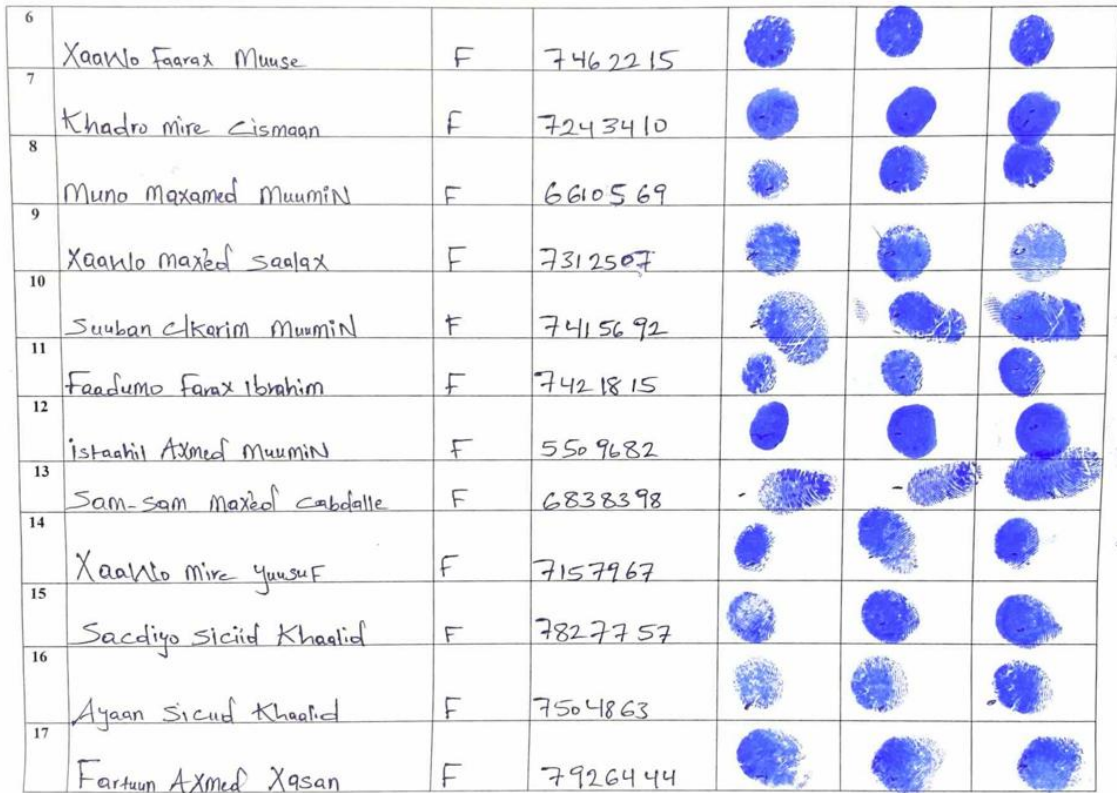 6 Xaawo Faarax Muuse F 7462215
7 Khadro mire Cismaan F 7243410
8 Muno Maxamed MuumiN F 6610569
9 Xaawo maxed Saalax F 7312507
10 Suuban C/karim MuumiN F 7415692
11 Faadumo Farax Ibrahim F 7421815
12 istaahil Axmed MuumiN F 5509682
13 Sam-Sam Maxed Cabdalle F 6838398
14 Xaawo Mire YuusuF F 7157967
15 Sacdiyo Siciid Khaalid F 7827757
16 Ayaan Siciid Khaalid F 7504863
17 Fartuun Axmed Xasan F 7926444